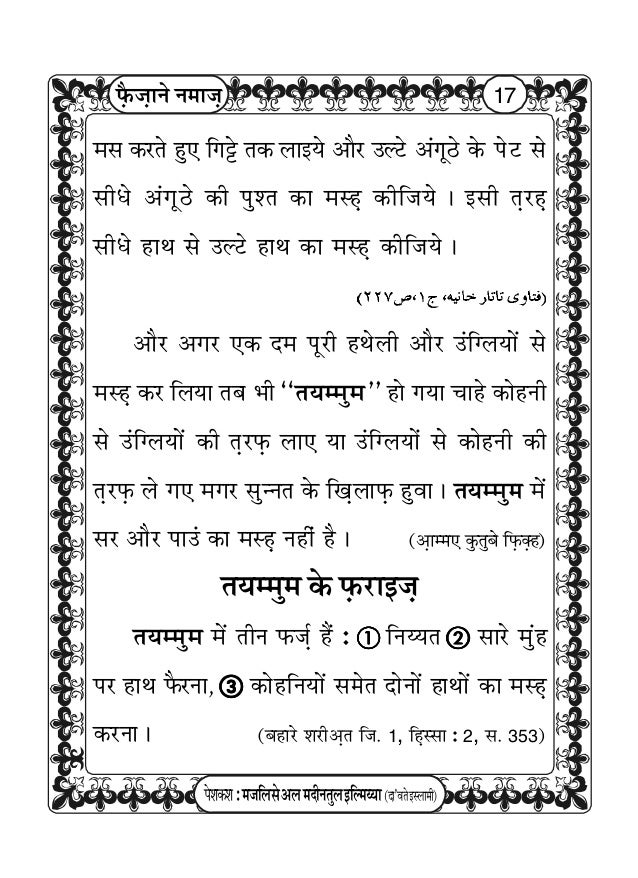 फ़ैज़ाने नमाज़
17
मस करते हुए गिट्टे तक लाइये और उल्टे अंगूठे के पेट से
सीधे अंगूठे की पुश्त का मस्ह़ कीजिये । इसी त़रह़
सीधे हाथ से उल्टे हाथ का मस्ह़ कीजिये ।
(فتاوی تاتار خانیه، ج۱،ص۲۲۷)
और अगर एक दम पूरी हथेली और उंग्लियों से
मस्ह़ कर लिया तब भी ‘‘तयम्मुम’’ हो गया चाहे कोहनी
से उंग्लियों की त़रफ़ लाए या उंग्लियों से कोहनी की
त़रफ़ ले गए मगर सुन्नत के ख़िलाफ़ हुवा । तयम्मुम में
सर और पाउं का मस्ह़ नहीं है । (आ़म्मए कुतुबे फ़िक़्ह)
तयम्मुम के फ़राइज़
तयम्मुम में तीन फर्ज़ हैं : ① निय्यत ② सारे मुंह
पर हाथ फैरना, ③ कोहनियों समेत दोनों हाथों का मस्ह़
करना । (बहारे शरीअ़त जि. 1, ह़िस्सा : 2, स. 353)
पेशकश : मजलिसे अल मदीनतुल इल्मिय्या (दा’वते इस्लामी)